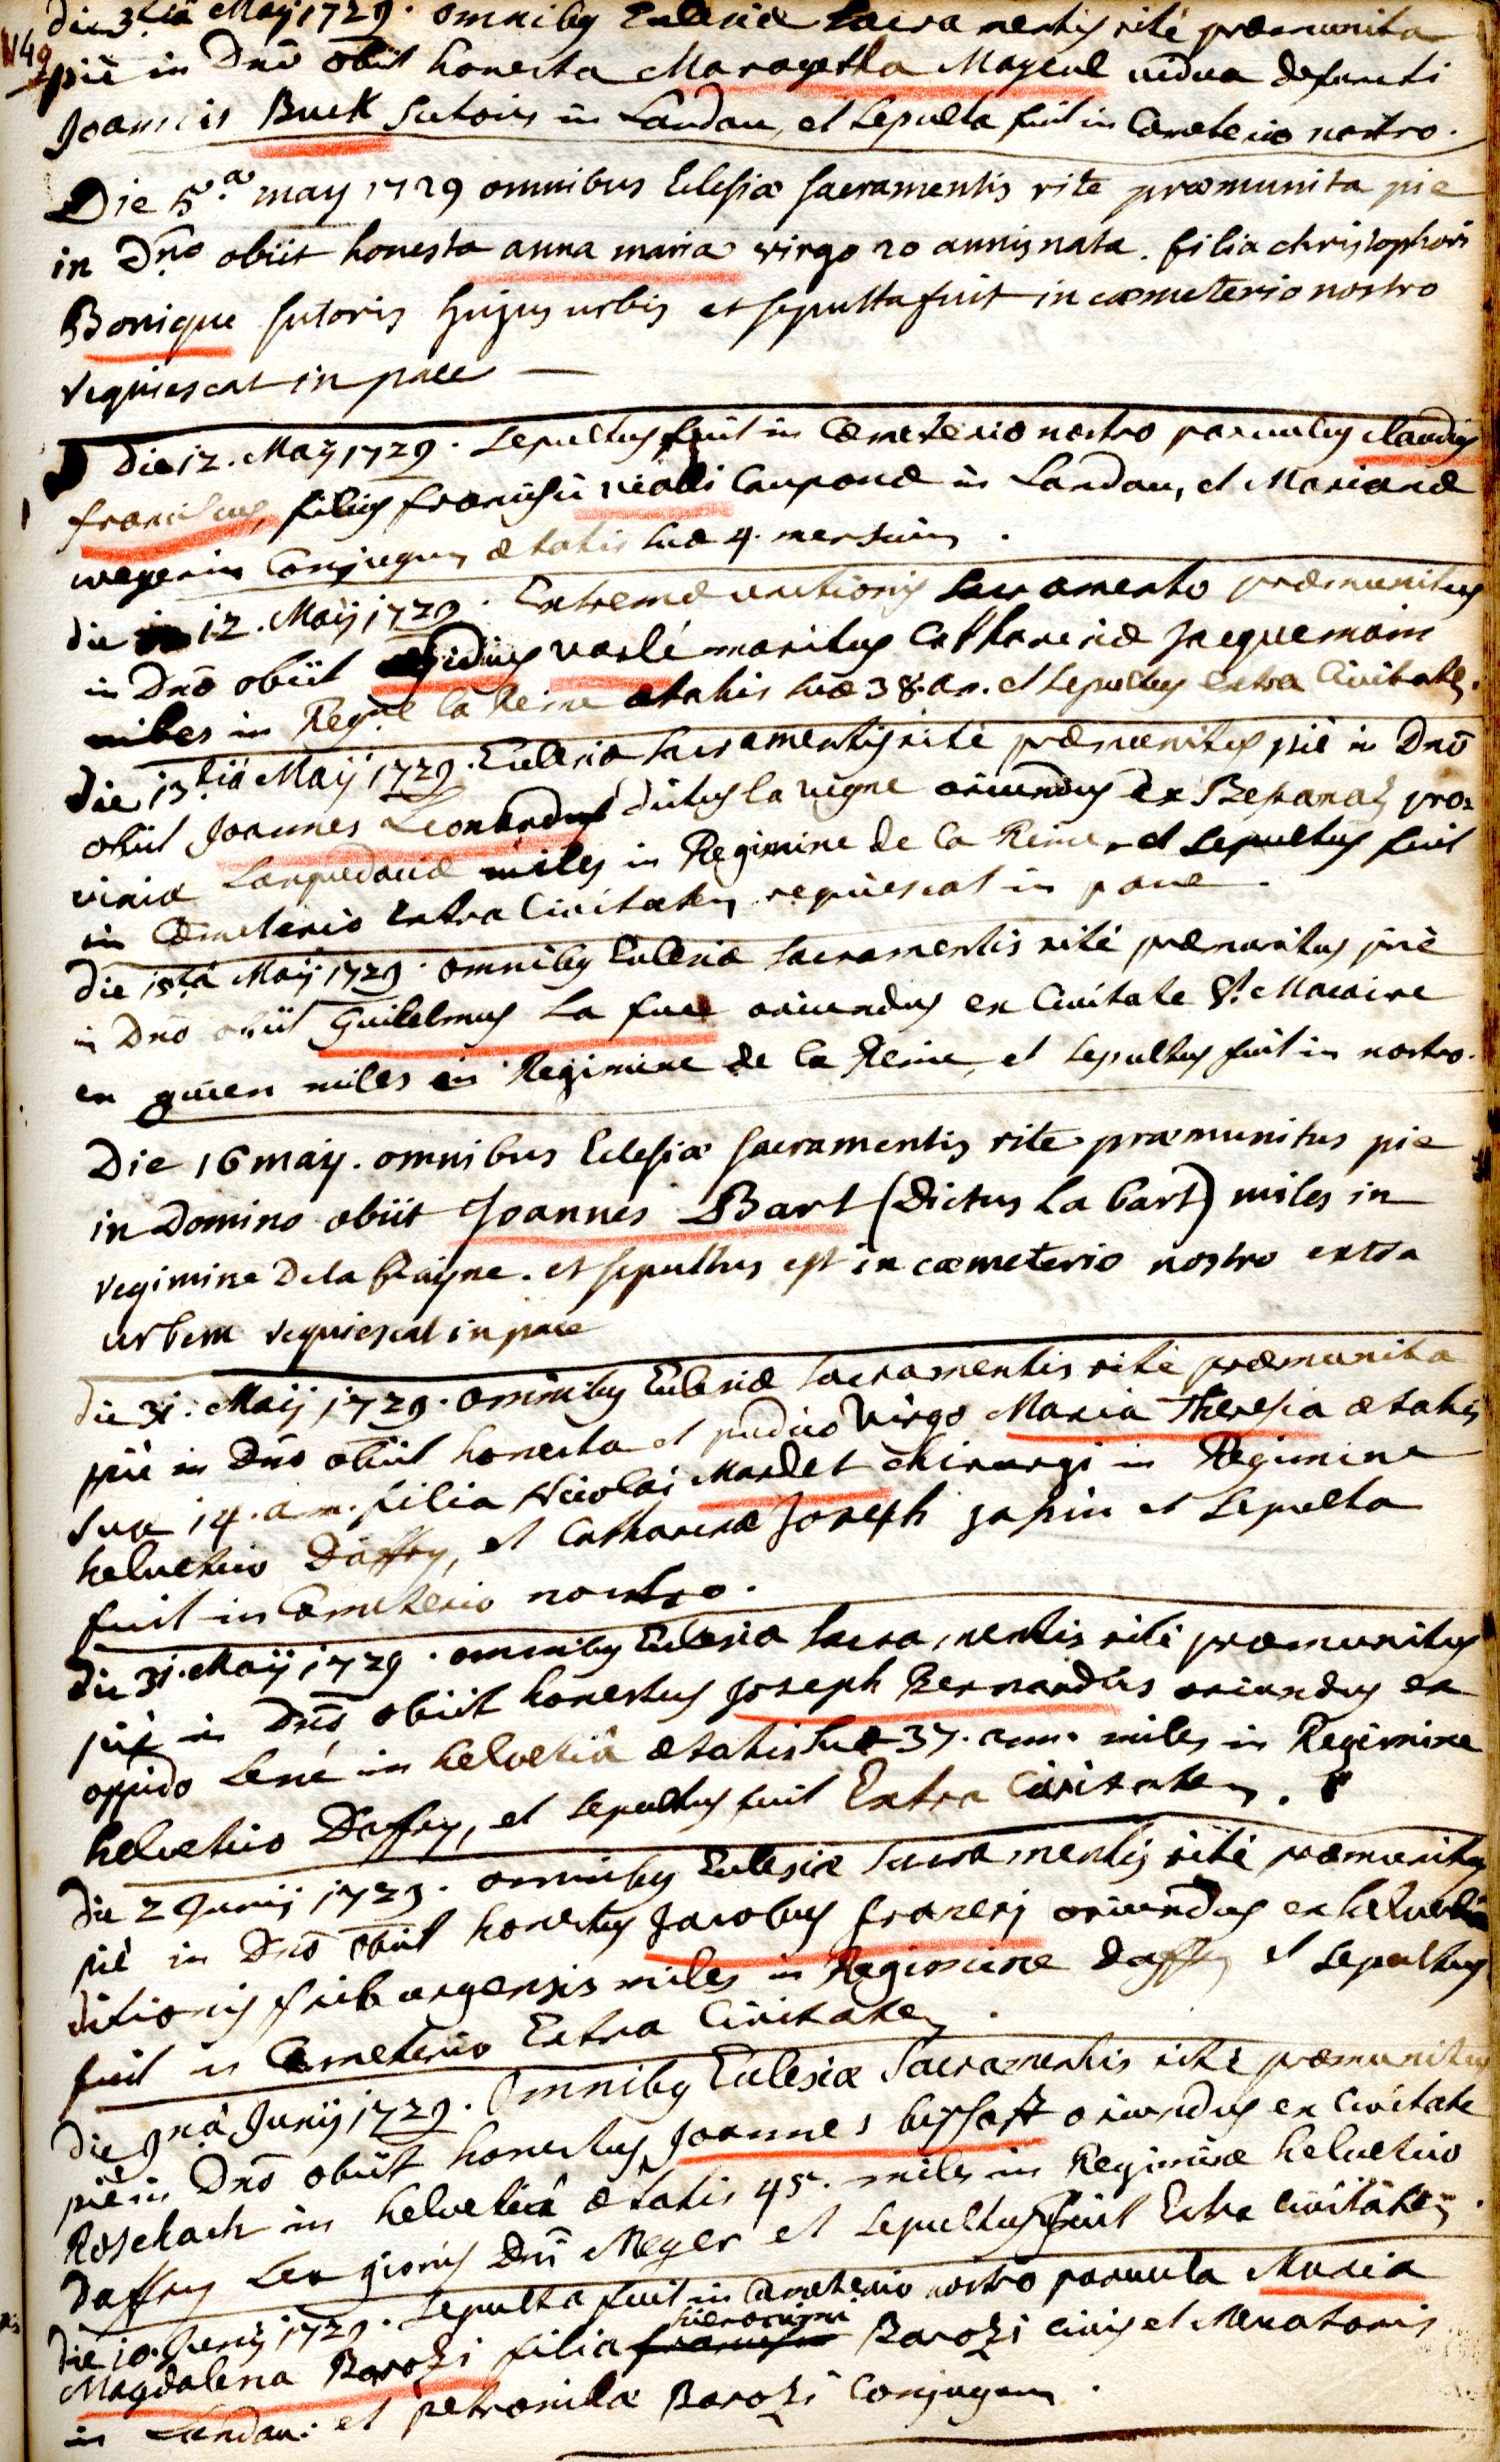 die 3.tiâ Maÿ 1729. omniby Eclesiæ Sacramentis rité præmunita
149
piè in Dnō obiit honesta Maragetha Mayeul vidua defuncti
Joannis Buck Sutoris in Landau, et Sepulta fuit in Cœmeterio nostro.
Die 5.a may 1729 omnibus Eclesiæ sacramentis rite præmunita pie
in Dn̄o obiit honesta anna maria virgo 20 annis nata. filia christophori
Bonique sutoris hujus urbis et sepulta fuit in cœmeterio nostro
requiescat in pace —
Die 12. Maÿ 1729. Sepultus fuit in Cœmeterio nostro parvulus Claudius
franciscus, filius francisci vialli Cauponæ in Landau, et Marianæ
wegerin Conjugum ætatis suæ 4. mensium.
die 12. Maÿ 1729. Extremæ unctionis Sacramento præmunitus
in Dnō obiit Egidius varlé maritus Catharinæ Jacquemain
miles in Reg.ne la Reine ætatis suæ 38. an. et Sepultus extra Civitatem.
die 13.tiâ Maÿ 1729. Eclesiæ Sacramentis rité præmunitus piè in Dnō
obiit Joannes Leonardus dictus la vigne oriundus ex pro=
vinciæ Languedociæ miles in Regimine de la Reine, et Sepultus fuit
in Cœmeterio Extra Civitatem requiescat in pace.
die 15.tâ Maÿ 1729. omniby Eclesiæ Sacramentis rité præmunitus piè
in Dnō obiit Guilelmus La fuce oriundus ex Civitate St. Macaire
en guien miles in Regimine de la Reine, et Sepultus fuit in nostro.
Die 16 may. omnibus Eclesiæ sacramentis rite præmunitus pie
in Domino obiit Joannes Bart (Dictus La bart) miles in
regimine Dela Rayne. et sepultus est in cœmeterio nostro extra
urbem requiescat in pace
die 31. Maÿ 1729. omniby Eclesiæ Sacramentis rité præmunita
piè in Dnō obiit honesta et pudica Virgo Maria Theresia ætatis
suæ 14. an. filia Nicolai Mardet chirurgi in Regimine
helvetico Daffry, et Catharinæ Joseph Japin et Sepulta
fuit in Cœmeterio nostro.
die 31. Maÿ 1729. omniby Eclesiæ Sacramentis rité præmunitus
piè in Dnō obiit honestus Joseph Bernardus oriundus ex
oppido Lené in helvetiâ ætatis suæ 37. ann. miles in Regimine
helvetico Daffry, et Sepultus fuit Extra Civitatem.
die 2 Junij 1729. omniby Eclesiæ Sacramentis rité præmunitus
piè in Dnō obiit honestus Jacobus franeri oriundus ex helvetia
ditionis friburgensis miles in Regimine Daffry et Sepultus
fuit in Cœmeterio Extra Civitatem.
Die 9nâ Junij 1729. Omniby Eclesiæ Sacramentis rité præmunitus
piè in Dnō obiit honestus Joannes bischoff oriundus ex Civitate
Roschach in helvetiâ ætatis 45. miles in Regimine helvetico
Daffry Legionis Dnī Meyer et Sepultus fuit Extra Civitatem.
Die 10. Junij 1729. Sepulta fuit in Cœmeterio nostro parvula Maria
hieronimi
Magdalena Barozi filia francisci Barozi civis et Mercatoris
in Landau: et petronilæ Barozi Conjugum.